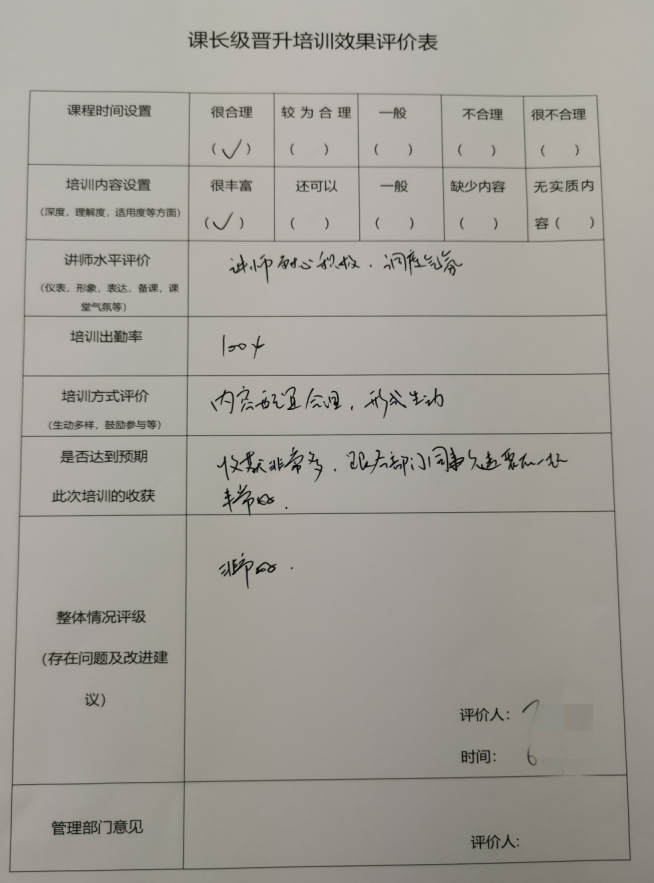 课长级晋升培训效果评价表
课程时间设置 很合理 较为合理 一般 不合理 很不合理
(✓) ( ) ( ) ( ) ( )
培训内容设置 很丰富 还可以 一般 缺少内容 无实质内
(深度、理解度、适用度等方面) (✓) ( ) ( ) ( ) 容( )
讲师水平评价 讲师耐心积极、调度气氛
(仪表、形象、表达、备课、课
堂气氛等)
培训出勤率 100%
培训方式评价 内容配置合理，形式生动
(生动多样、鼓励参与等)
是否达到预期 收获非常多，跟各部门同事
此次培训的收获 非常好.
整体情况评级 非常好.
(存在问题及改进建
议)
评价人：
时间： 6
管理部门意见
评价人: